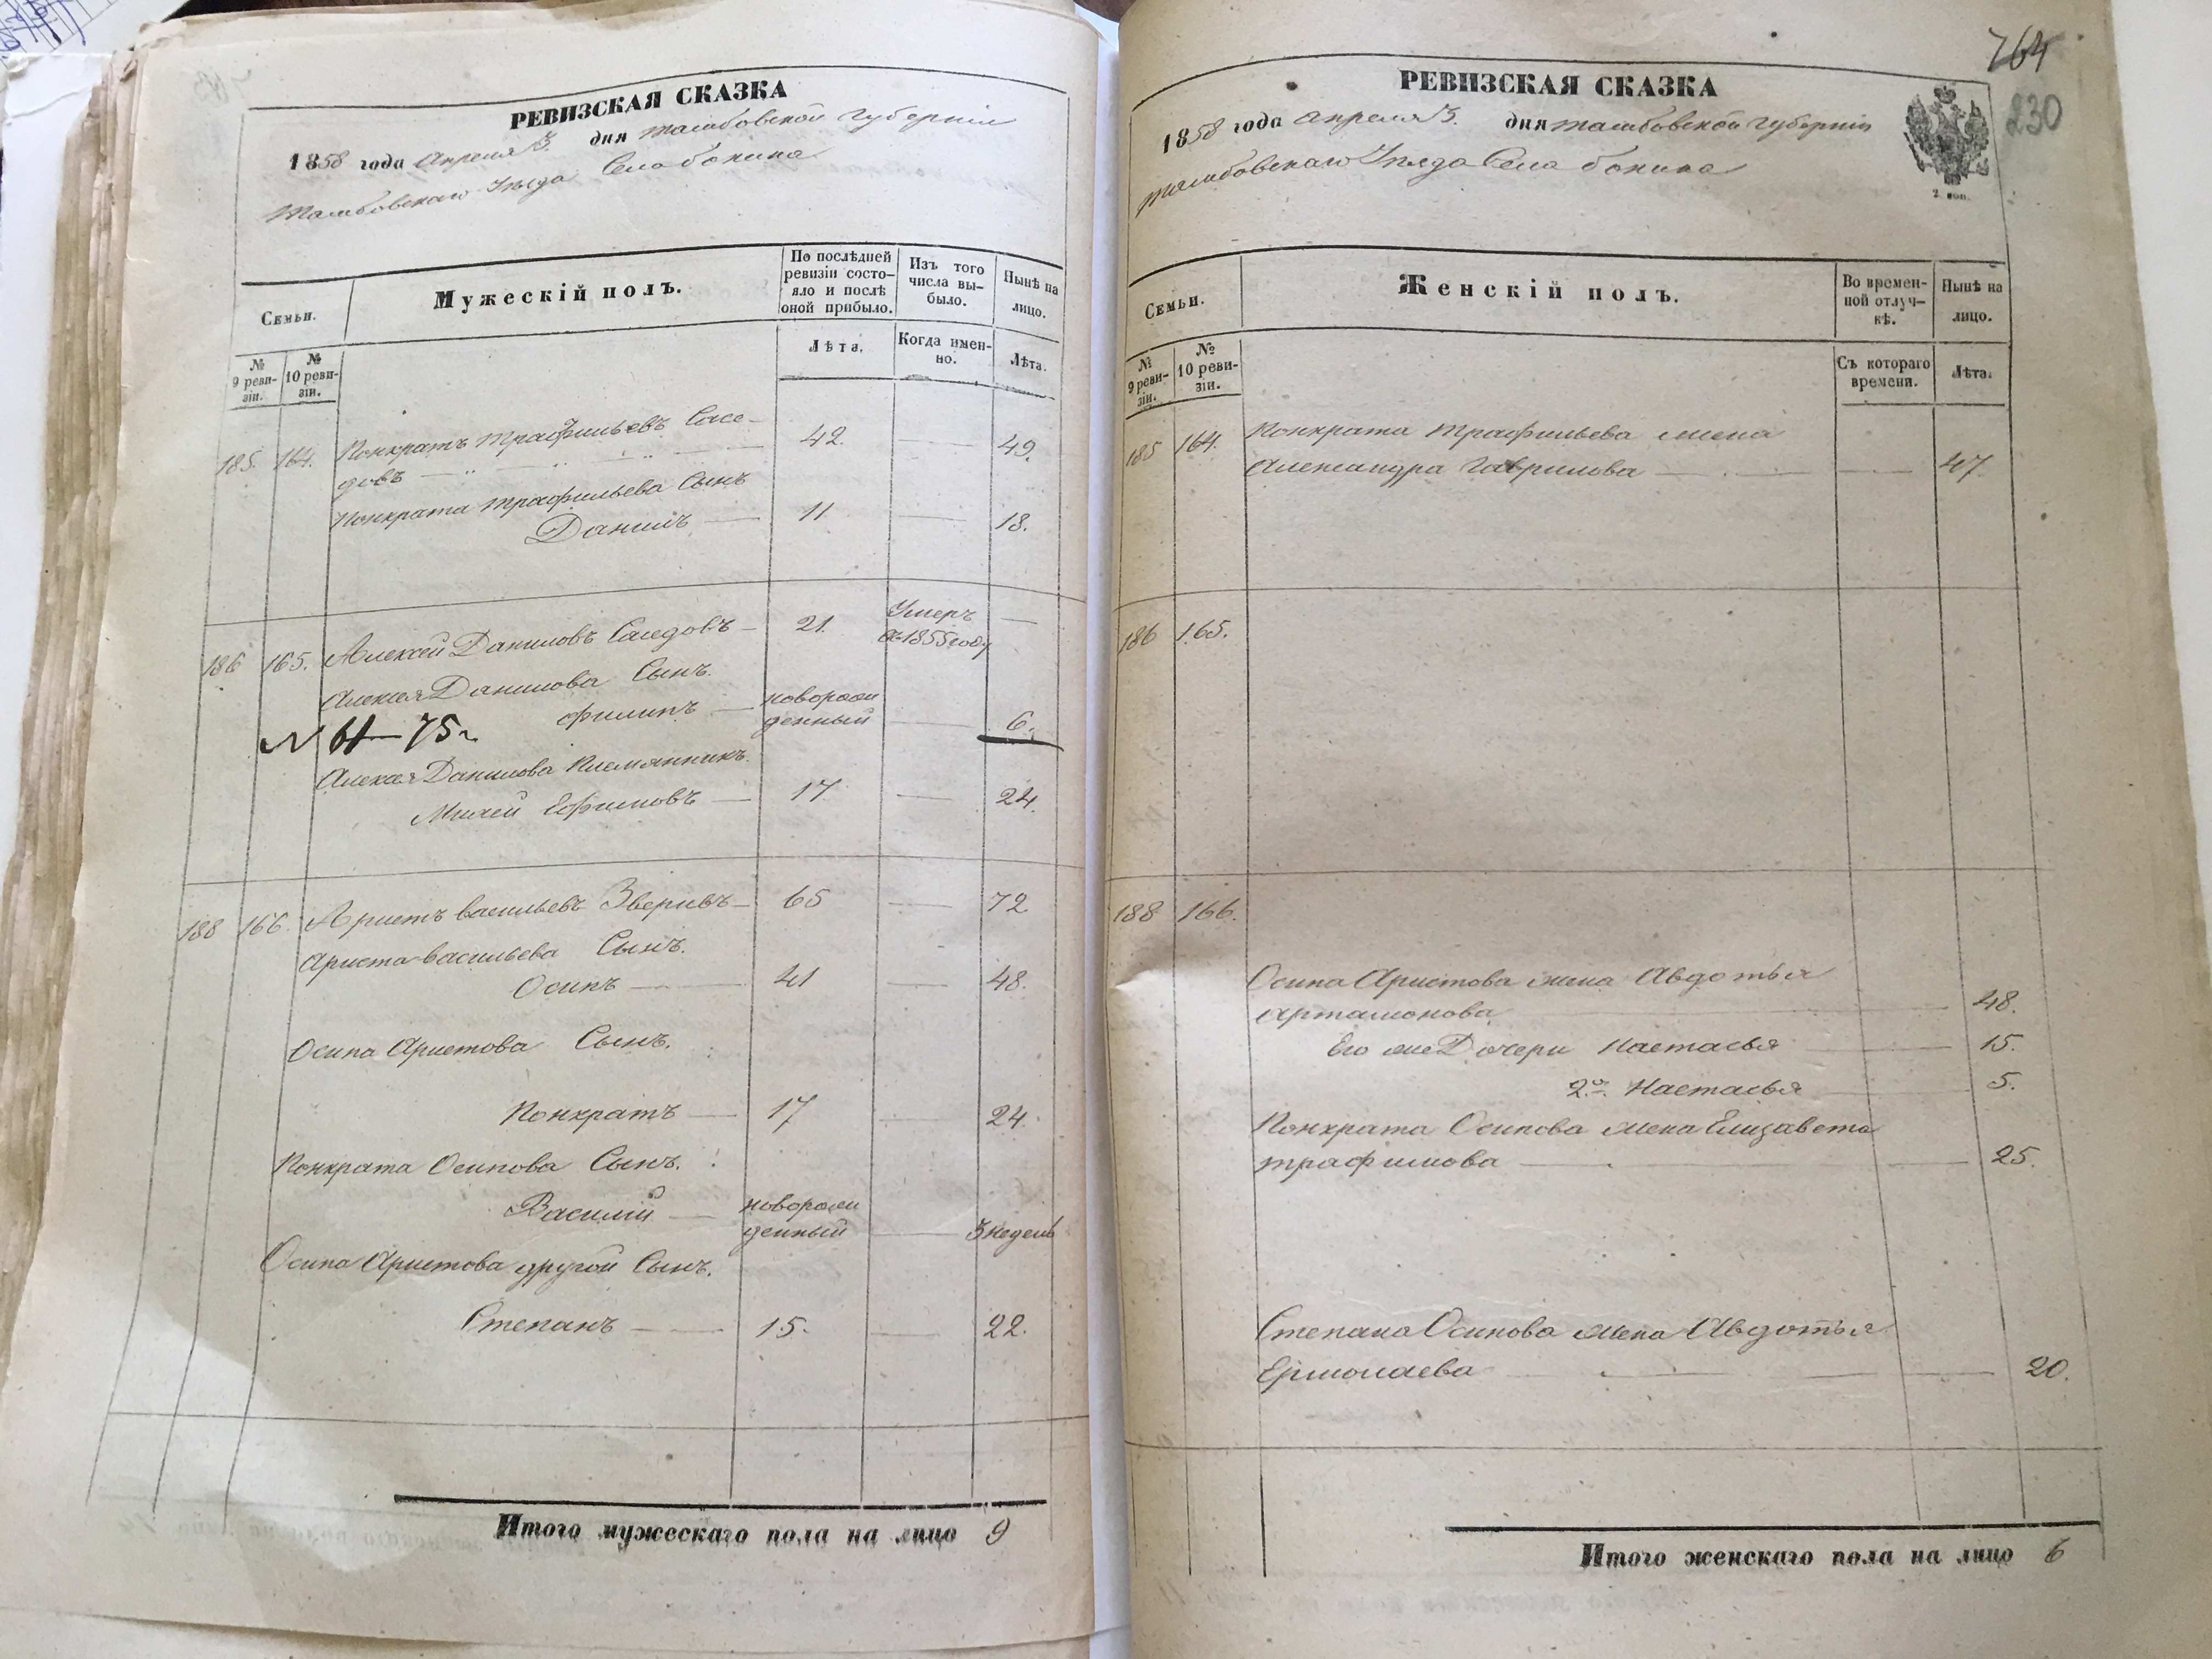 РЕВИЗСКАЯ СКАЗКА
1858 года Апреля 3. дня Тамбовской Губернии
Тамбовскаго Уезда Села бокина
Семьи.
Мужескій полъ.
По послѣдней ревизіи состо-
яло и послѣ
оной прибыло.
Изъ того
числа вы-
было.
Нынѣ на
лицо.
№
9 реви-
зіи.
№
10 реви-
зіи.
Лѣта.
Когда имен-
но.
Лѣта.
185. 164. Понкратъ Трафильевъ Сасе- 42. 49.
довъ
Понкрата Трафильева Сынъ
Данилъ 11 18.
186 165. Алексей Даниловъ Саседовъ 21. Умеръ
въ 1855 году
Алексея Данилова Сынъ.
Филипъ новорож
денный 6.
N 61-75г.
Алексея Данилова Племянникъ.
Михей Ефимовъ 17 24.
188 166. Аристъ васильевъ Зверивъ 65 72
Ариста васильева Сынъ.
Осипъ 41 48.
Осипа Аристова Сынъ.
Понкратъ 17 24.
Понкрата Осипова Сынъ.
Василий новорож
денный 3 недель
Осипа Аристова другой Сынъ.
Степанъ 15. 22.
Итого мужескаго пола на лицо 9
764
230
РЕВИЗСКАЯ СКАЗКА
1858 года апреля 3. дня тамбовской губернии
тамбовскаго Уезда Села бокина
2. коп.
Семьи.
Женскій полъ.
Во времен-
ной отлуч-
кѣ.
Нынѣ на
лицо.
№
9 реви-
зіи.
№
10 реви-
зіи.
Съ котораго
времени.
Лѣта.
185 164. Понкрата Трафильева жена
Александра Гаврилова 47
186 165.
188 166.
Осипа Аристова жена Авдотья
Артамонова 48.
Его же Дочери Настасья 15.
2.я Настасья 5.
Понкрата Осипова жена Елизавета
трафимова 25.
Степана Осипова жена Авдотья
Ермолаева 20.
Итого женскаго пола на лицо 6